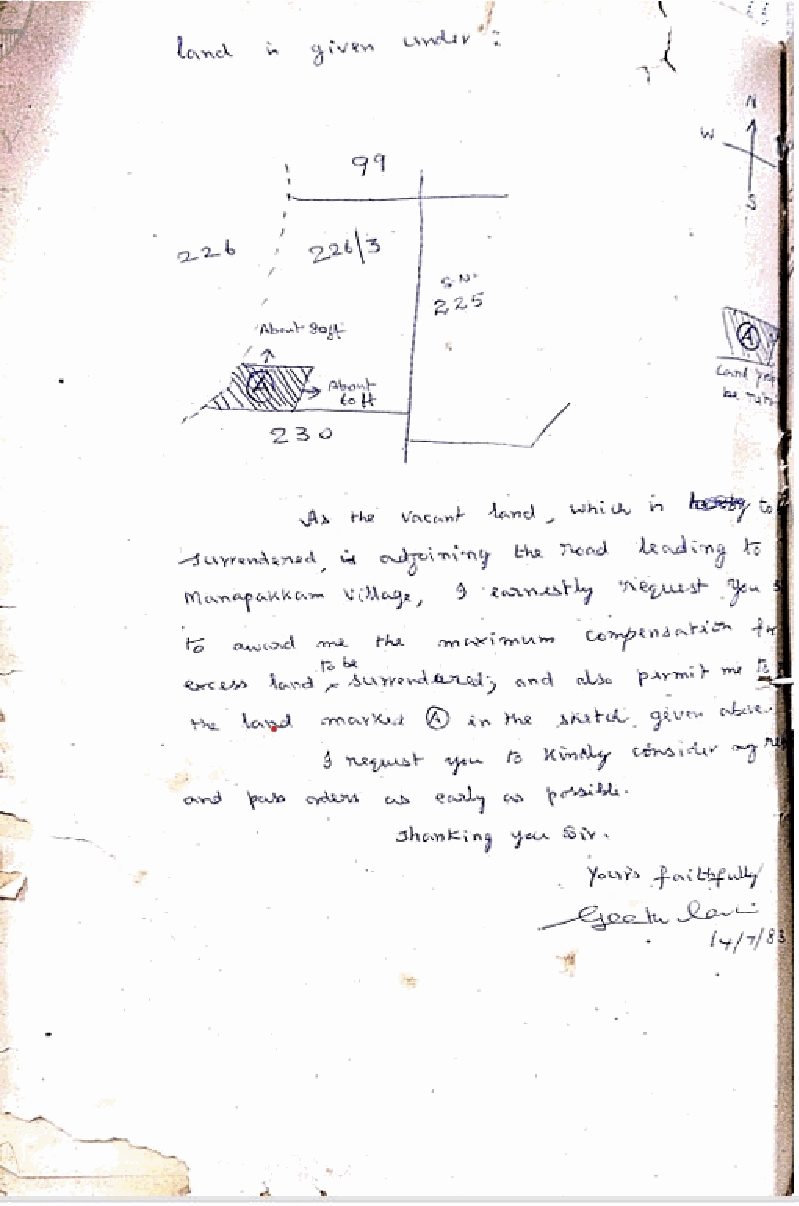 land is given under:
99
N
W
S
226
226/3
S.No.
225
About 80ft
A
A
About
60 ft
Land
be
230
As the vacant land, which is to
surrendered, is adjoining the road leading to
Manapakkam Village, I earnestly request you
to award me the maximum compensation for
excess land to be surrendered; and also permit me to
the land marked A in the sketch given above.
I request you to kindly consider my
and pass orders as early as possible.
Thanking you Sir.
Yours faithfully
14/7/83